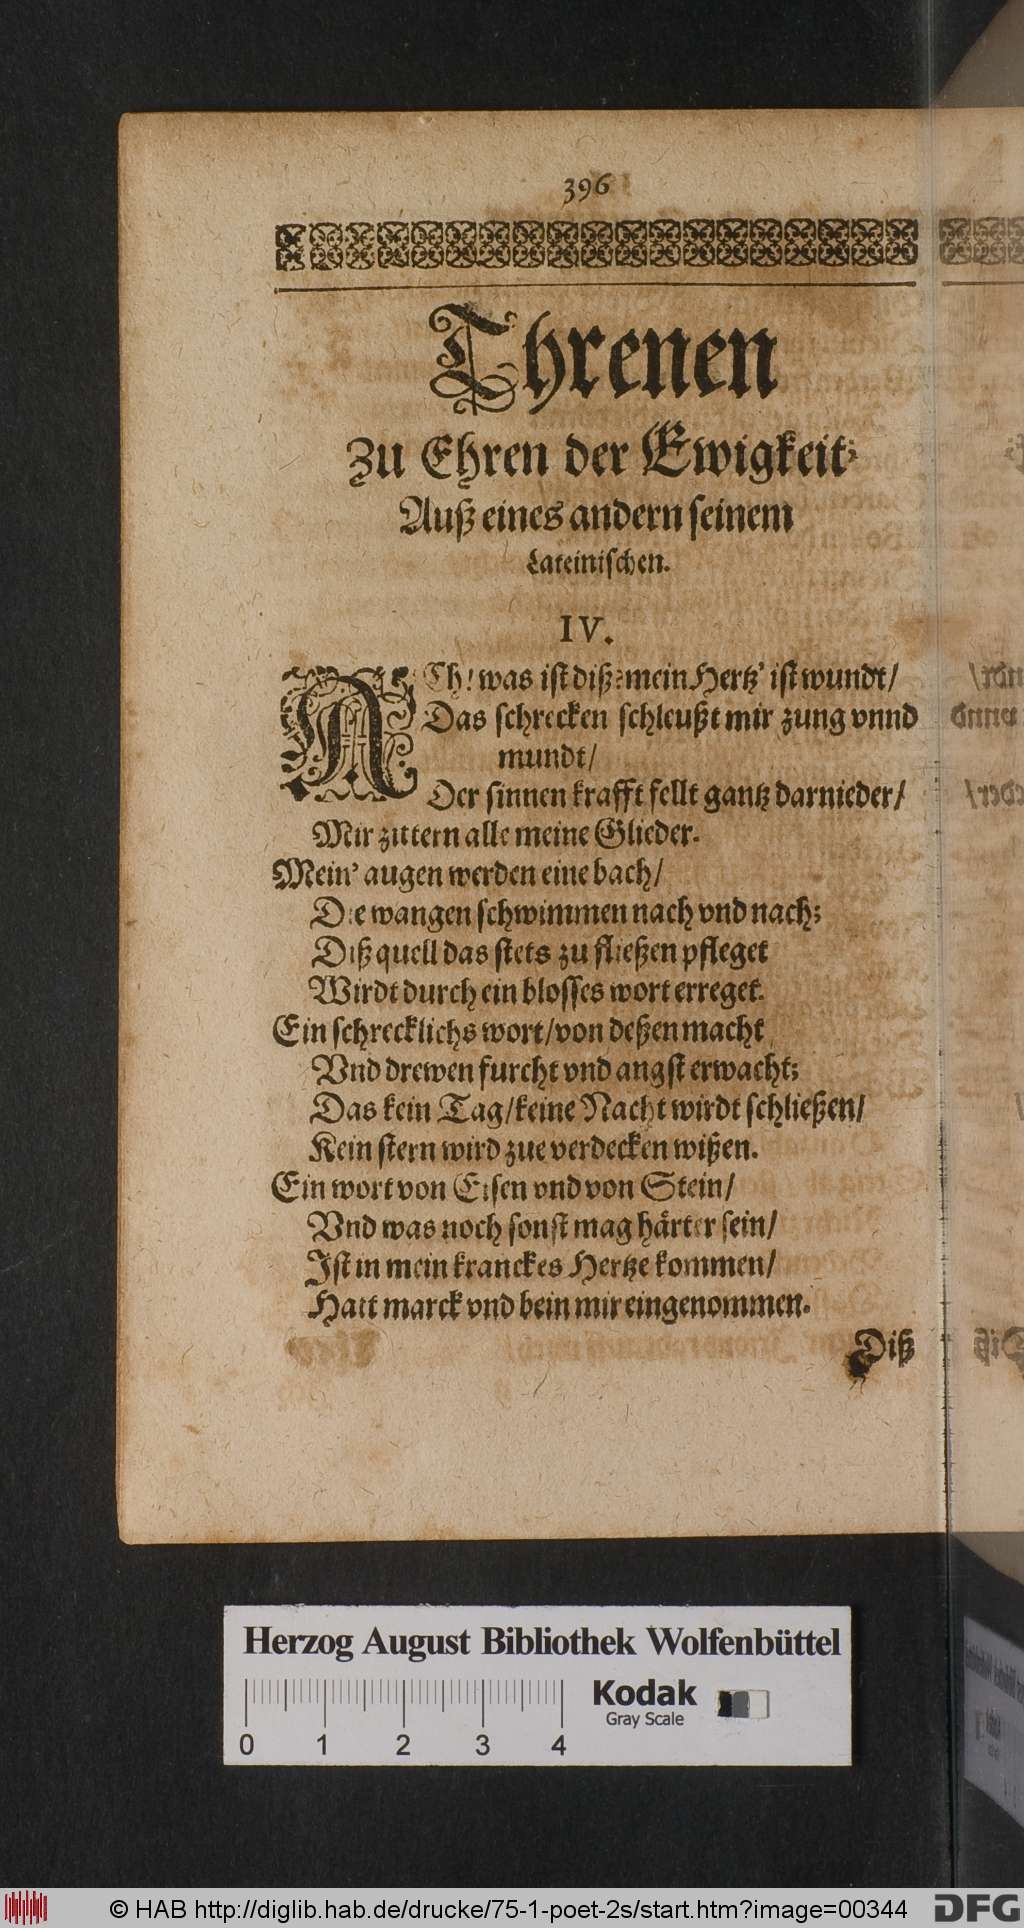 396
Threnen
Zu Ehren der Ewigkeit;
Auß eines andern seinem
Lateinischen.
IV.
ACh! was ist diß? mein Hertz' ist wundt/
Das schrecken schleußt mir zung vnnd
mundt/
Der sinnen krafft fellt gantz darnieder/
Mir zittern alle meine Glieder.
Mein' augen werden eine bach/
Die wangen schwimmen nach vnd nach;
Diß quell das stets zu fließen pfleget
Wirdt durch ein blosses wort erreget.
Ein schrecklichs wort/von deßen macht
Vnd drewen furcht vnd angst erwacht;
Das kein Tag/keine Nacht wirdt schließen/
Kein stern wird zue verdecken wißen.
Ein wort von Eisen vnd von Stein/
Vnd was noch sonst mag härter sein/
Ist in mein kranckes Hertze kommen/
Hatt marck vnd bein mir eingenommen.
Diß
Herzog August Bibliothek Wolfenbüttel
Kodak
Gray Scale
0 1 2 3 4
© HAB http://diglib.hab.de/drucke/75-1-poet-2s/start.htm?image=00344
DFG